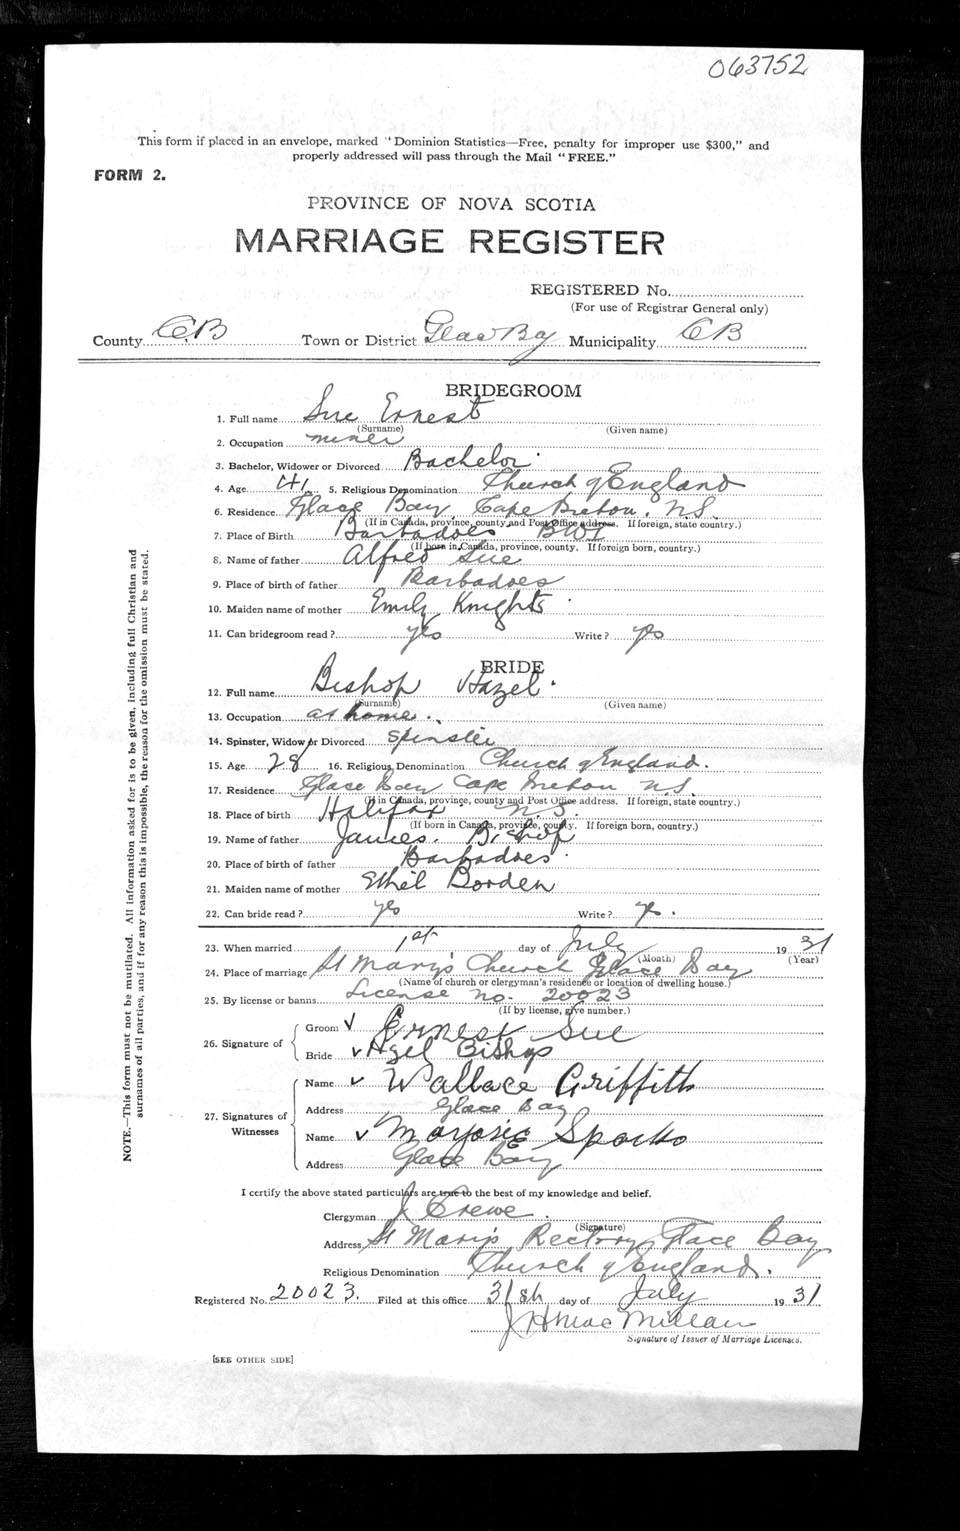 063752
This form if placed in an envelope, marked "Dominion Statistics—Free, penalty for improper use $300," and
properly addressed will pass through the Mail "FREE."
FORM 2.
PROVINCE OF NOVA SCOTIA
MARRIAGE REGISTER
REGISTERED No.
(For use of Registrar General only)
County CB Town or District Glace Bay Municipality CB
BRIDEGROOM
1. Full name Sue Ernest
(Surname) (Given name)
2. Occupation miner
3. Bachelor, Widower or Divorced Bachelor
4. Age 41 5. Religious Denomination Church of England
6. Residence Glace Bay Cape Breton. N.S.
(If in Canada, province, county and Post Office address. If foreign, state country.)
7. Place of Birth Barbadoes BWI
(If born in Canada, province, county. If foreign born, country.)
8. Name of father Alfred Sue
9. Place of birth of father Barbadoes
10. Maiden name of mother Emily Knights
11. Can bridegroom read? yes Write? yes
BRIDE
12. Full name Bishop Hazel.
(Surname) (Given name)
13. Occupation at home.
14. Spinster, Widow or Divorced Spinster
15. Age 28 16. Religious Denomination Church of England.
17. Residence Glace Bay Cape Breton N.S.
(If in Canada, province, county and Post Office address. If foreign, state country.)
18. Place of birth Halifax N.S.
(If born in Canada, province, county. If foreign born, country.)
19. Name of father James. Bishop
20. Place of birth of father Barbadoes
21. Maiden name of mother Ethel Borden
22. Can bride read? yes Write? yes.
23. When married 1st day of July 1931
(Month) (Year)
24. Place of marriage St Mary's Church Glace Bay
(Name of church or clergyman's residence or location of dwelling house.)
25. By license or banns License no. 20023
(If by license, give number.)
26. Signature of
Groom Ernest Sue
Bride Hazel Bishop
27. Signatures of Witnesses
Name Wallace Griffith
Address Glace Bay
Name Marjorie Sparks
Address Glace Bay
I certify the above stated particulars are true to the best of my knowledge and belief.
Clergyman J Crewe.
(Signature)
Address St Mary's Rectory Glace Bay
Religious Denomination Church of England.
Registered No. 20023. Filed at this office 31st day of July 1931
Signature of Issuer of Marriage Licenses.
[SEE OTHER SIDE]
NOTE.—This form must not be mutilated. All information asked for is to be given, including full Christian and
surnames of all parties, and if for any reason this is impossible, the reason for the omission must be stated.